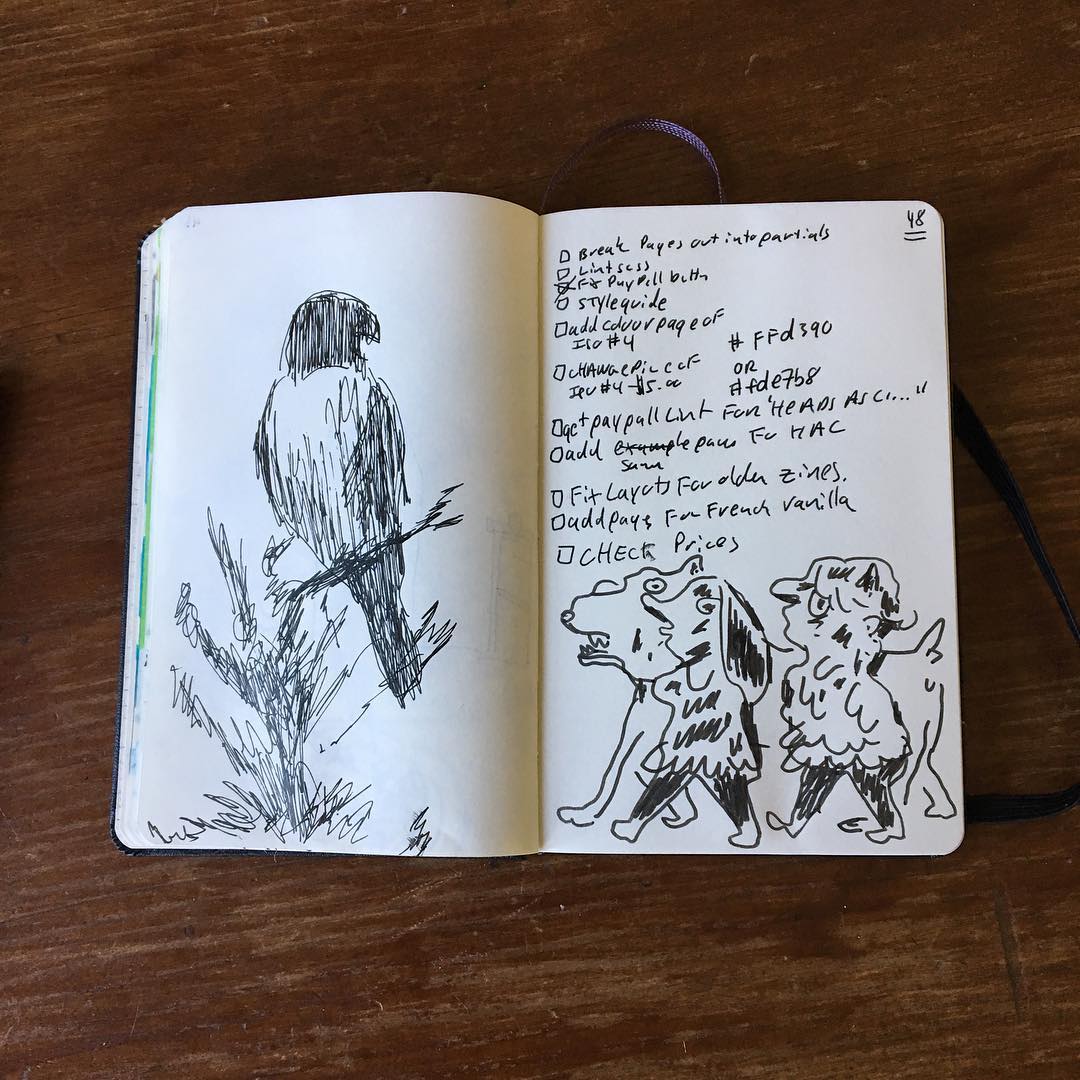 48
Break Pages out into partials
Lint scss
Fix PayPall button
Styleguide
add colour page of
Issu #4
# FFd390
OR
#fde7b8
Price of
Issu #4 $5.00
get paypall Link For "HEADS AS Ci..."
add example pages For MAC
Fix Layouts For older zines.
add pages For French vanilla
CHECK Prices